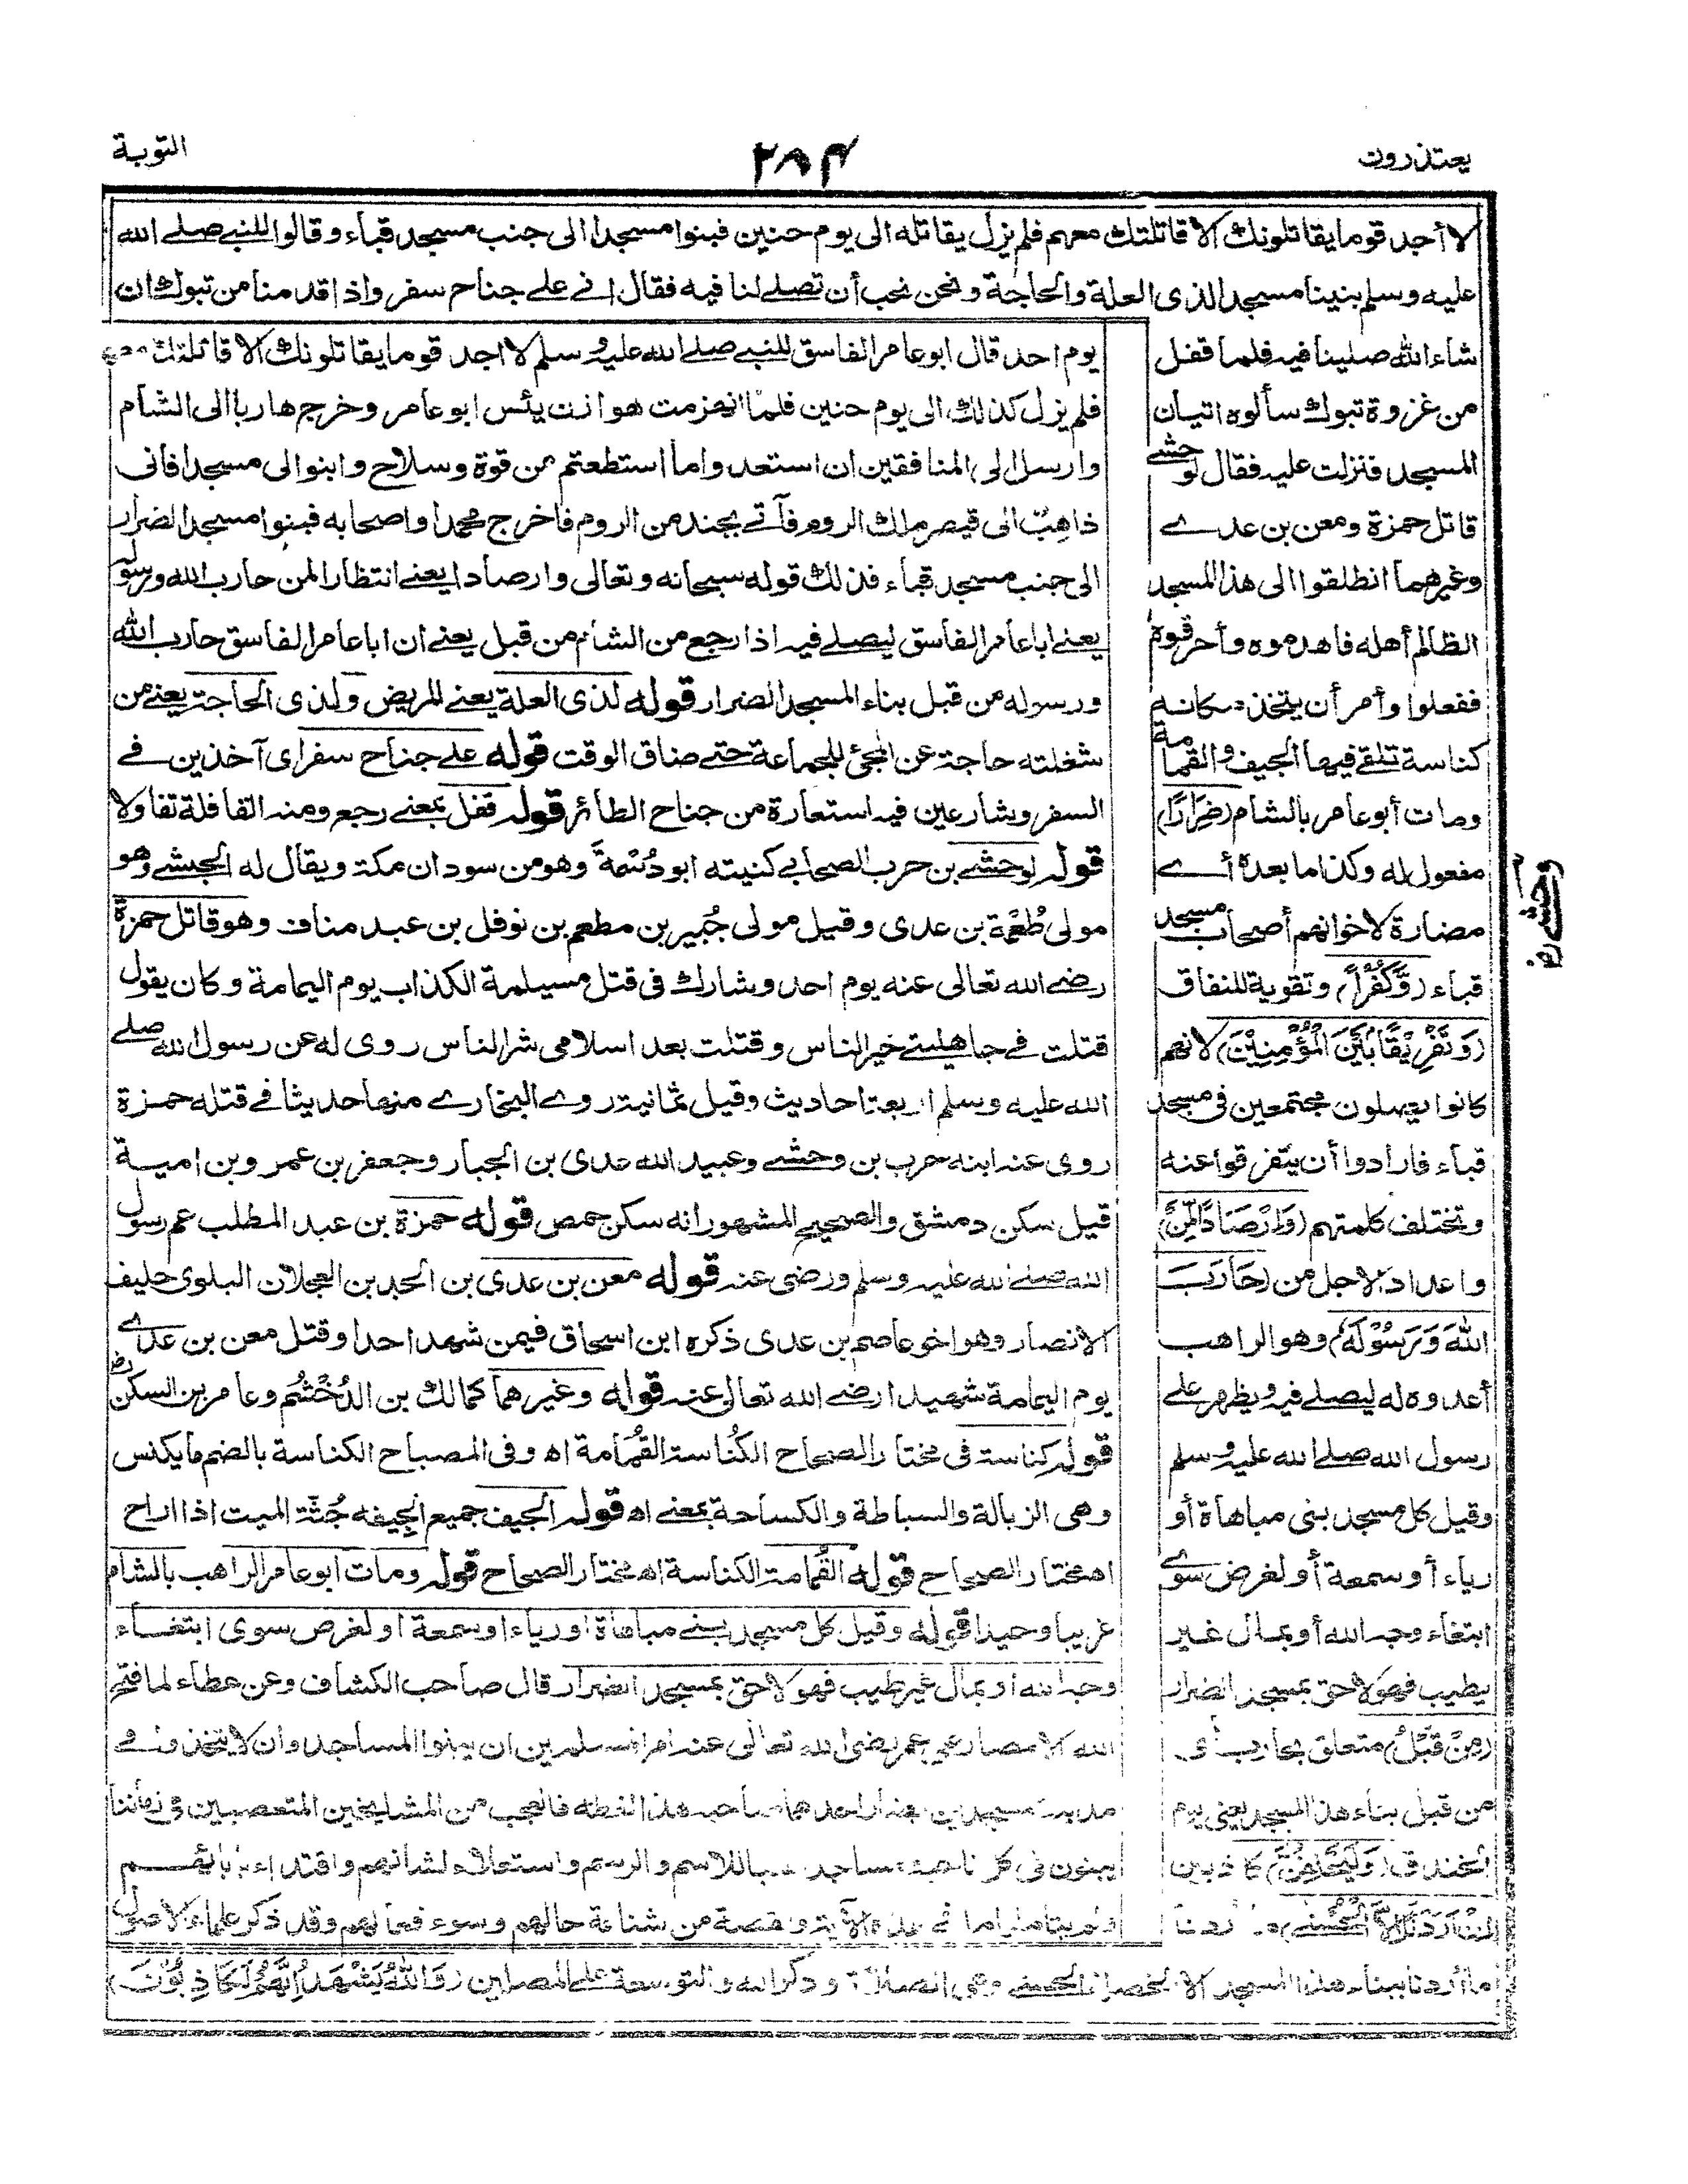 يعتذرون
٢٨٤
التوبة
لا أجد قوما يقاتلونك الا قاتلتك معهم فلم يزل يقاتله الى يوم حنين فبنوا مسجدا الى جنب مسجد قباء وقالوا للنبي صلى الله
عليه وسلم بنينا مسجد الذى العلة والحاجة ونحن نحب أن تصلى لنا فيه فقال انى على جناح سفر واذا قدمنا من تبوك ان
شاء الله صلينا فيه فلما قفل
من غزوة تبوك سألوه اتيان
المسجد فنزلت عليه فقال لوحشى
قاتل حمزة ومعن بن عدى
وغيرهما انطلقوا الى هذا المسجد
الظالم أهله فاهدموه وأحرقوه
ففعلوا وأمر أن يتخذ مكانه
كناسة تلقى فيها الجيف والقمامة
ومات أبو عامر بالشام (ضِرَارًا)
مفعول له وكذا ما بعده أى
مضارة لاخوانهم أصحاب مسجد
قباء (وَّكُفْرًا) وتقوية للنفاق
(وَّتَفْرِيْقًا بَيْنَ الْمُؤْمِنِيْنَ) لانهم
كانوا يصلون مجتمعين فى مسجد
قباء فارادوا أن يتفرقوا عنه
وتختلف كلمتهم (وَاِرْصَادًا لِّمَنْ)
واعدادا لاجل من (حَارَبَ
اللّٰهَ وَرَسُوْلَهٗ) وهو الراهب
أعدوه له ليصلى فيه ويظهر على
رسول الله صلى الله عليه وسلم
وقيل كل مسجد بنى مباهاة أو
رياء أو سمعة أو لغرض سوى
ابتغاء وجه الله أو بمال غير
طيب فهو لاحق بمسجد الضرار
(مِنْ قَبْلُ) متعلق بحارب أى
من قبل بناء هذا المسجد يعنى يوم
الخندق (وَلَيَحْلِفُنَّ) كاذبين
(اِنْ اَرَدْنَآ اِلَّا الْحُسْنٰى) ما أردنا
يوم احد قال ابو عامر الفاسق للنبي صلى الله عليه وسلم لا اجد قوما يقاتلونك الا قاتلتك معهم
فلم يزل كذلك الى يوم حنين فلما انهزمت هوازن يئس ابو عامر وخرج هاربا الى الشأم
وارسل الى المنافقين ان استعدوا ما استطعتم من قوة وسلاح وابنوا لى مسجدا فانى
ذاهِبٌ الى قيصر ملك الروم فآتى بجند من الروم فاخرج محمدا واصحابه فبنوا مسجد الضرار
الى جنب مسجد قباء فذلك قوله سبحانه وتعالى وارصادا يعنى انتظارا لمن حارب الله ورسوله
يعنى ابا عامر الفاسق ليصلى فيه اذا رجع من الشأم من قبل يعنى ان ابا عامر الفاسق حارب الله
ورسوله من قبل بناء المسجد الضرار قوله لذى العلة يعنى للمريض ولذى الحاجة يعنى من
شغلته حاجة عن المجئ للجماعة حتى ضاق الوقت قوله على جناح سفر اى آخذين فى
السفر وشارعين فيه استعارة من جناح الطائر قوله قفل بمعنى رجع ومنه القافلة تفاولا
قوله لوحشى بن حرب الصحابى كنيته ابو دُسْمَةَ وهو من سودان مكة ويقال له الحبشى وهو
مولى طُعْمَة بن عدى وقيل مولى جُبير بن مطعم بن نوفل بن عبد مناف وهو قاتل حمزة
رضى الله تعالى عنه يوم احد وشارك فى قتل مسيلمة الكذاب يوم اليمامة وكان يقول
قتلت فى جاهليتى خير الناس وقتلت بعد اسلامى شر الناس روى له عن رسول الله صلى
الله عليه وسلم اربعة احاديث وقيل ثمانية روى البخارى منها حديثا فى قتله حمزة
روى عنه ابنه حرب بن وحشى وعبيد الله عدى بن الجبار وجعفر بن عمرو بن امية
قيل سكن دمشق والصحيح المشهور انه سكن حمص قوله حمزة بن عبد المطلب عم رسول
الله صلى الله عليه وسلم ورضى عنه قوله معن بن عدى بن الجد بن العجلان البلوى حليف
الانصار وهو اخو عاصم بن عدى ذكره ابن اسحاق فيمن شهد احدا وقتل معن بن عدى
يوم اليمامة شهيدا رضى الله تعالى عنه قوله وغيرهما كمالك بن الدُخْشُم وعامر بن السكن رض
قوله كناسة فى مختار الصحاح الكُناسة القُمامة اه وفى المصباح الكناسة بالضم ما يكنس
وهى الزبالة والسباطة والكساحة بمعنى اه قوله الجيف جميع الجِيفه جُثّة الميت اذا اراح
اه مختار الصحاح قوله القُمامة الكناسة اه مختار الصحاح قوله ومات ابو عامر الراهب بالشام
غريبا وحيدا قوله وقيل كل مسجد بنى مباهاة او رياء او سمعة او لغرض سوى ابتغاء
وجه الله او بمال غير طيب فهو لاحق بمسجد الضرار قال صاحب الكشاف وعن عطاء لما فتح
الله الامصار على عمر رضى الله تعالى عنه امر المسلمين ان يبنوا المساجد وان لا يتخذوا فى
مدينة مسجدين يضار احدهما صاحبه هذا لفظه فالعجب من المشايخين المتعصبين فى زماننا
يبنون فى كل ناحية مساجد طلبا للاسم والرسم واستعلاء لشانهم واقتداء بآبائهم
ولم يتأملوا ما فى هذه الآية والقصة من شناعة حالهم وسوء فعالهم وقد ذكر علماء الاصول
ما أردنا ببناء هذا المسجد الا الخصلة الحسنى وهى الصلاة وذكر الله والتوسعة على المصلين (وَاللّٰهُ يَشْهَدُ اِنَّهُمْ لَكٰذِبُوْنَ)
وحشى رض